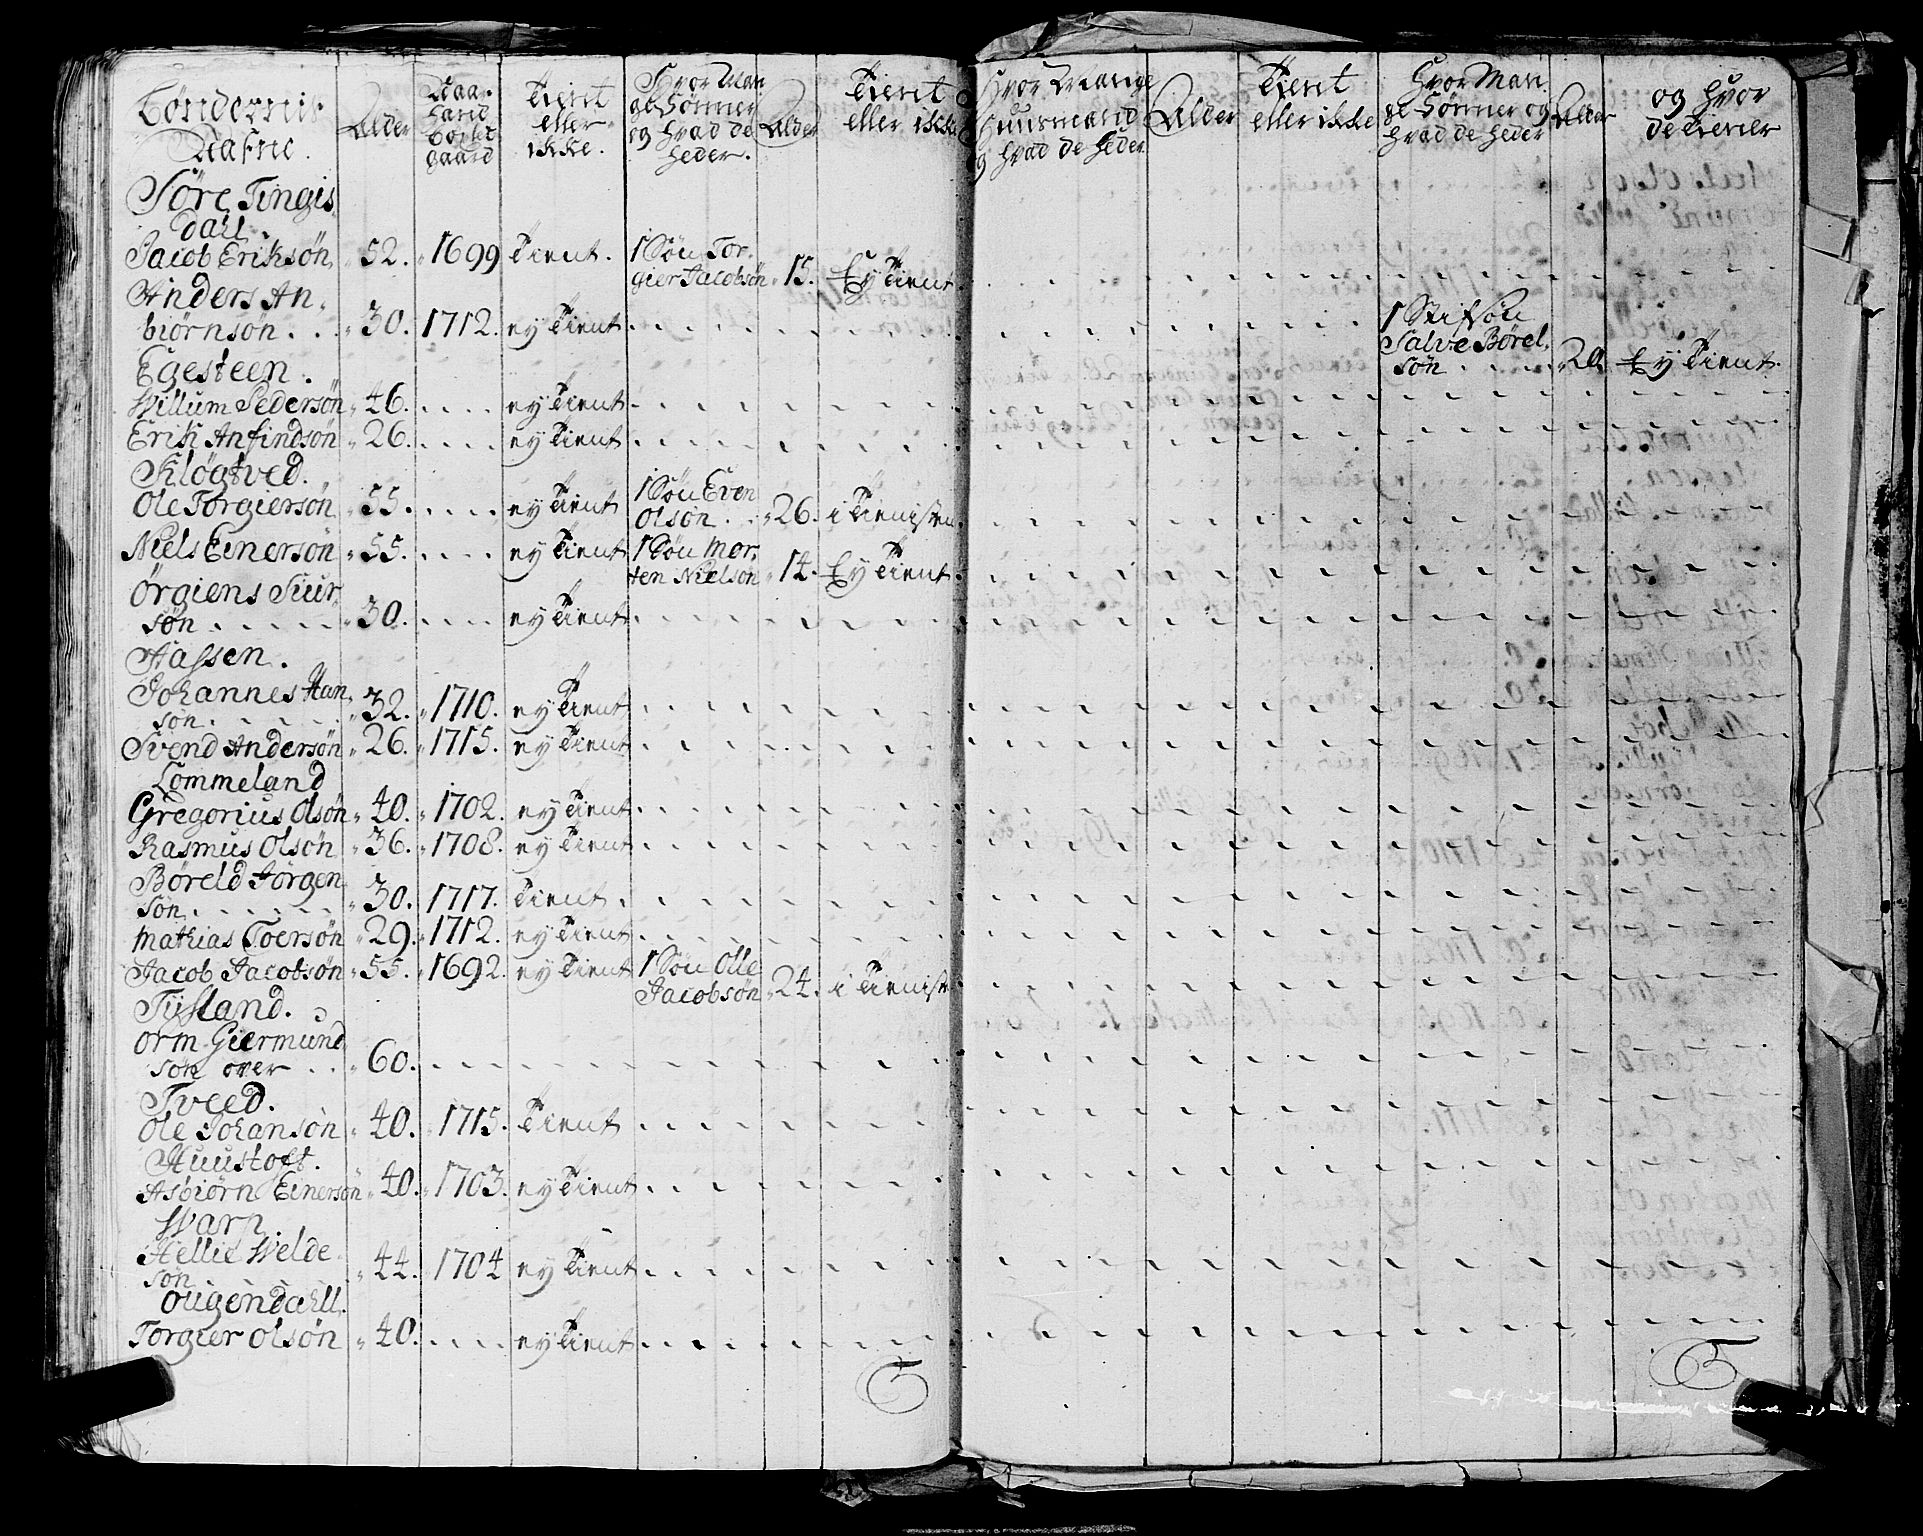 Bøndernis Nafne. Alder Naar hand boxlet gaard Tient eller ikke. Hvor Man ge Sønner og hvad de heder. Alder Tient eller ikke Hvor Mange Huusmænd og hvad de heder Alder Tient eller ikke Hvor Man ge Sønner og hvad de heder Alder og hvor de tiener
Søre Tingis
Dahl
Jacob Eriksøn 52. 1699 tient. 1 Søn Tor
gier Jacobsøn 15. Ey tient
Anders An
biørnsøn . . . 30. 1712. ey tient
1 Stifsøn
Salve Børel
søn . . . . 20. Ey tient.
Egesteen.
Willum Pedersøn 46. . . . . ey tient
Erik Anfindsøn 26. . . . . ey tient
Kløgtved.
Ole Torgiersøn 55. . . . . ey tient 1 Søn Even
Olsøn . . 26. i tienisten
Niels Einersøn 55. . . . . ey tient 1 Søn Mor
ten Nielsøn 14. Ey tient
Ørgiens Siur
søn . . . . . 30. . . . . ey tient
Hassen.
Johannes Han
søn. . . . . 32. 1710. ey tient
Svend Andersøn 26. 1715. ey tient
Lommeland
Gregorius Olsøn 40. 1702. ey tient
Rasmus Olsøn 36. 1708. ey tient
Børeld Jørgen
søn. . . . . 30. 1717. tient.
Mathias Toersøn 29. 1712. ey tient
Jacob Jacobsøn 55. 1692. ey tient 1 Søn Olle
Jacobsøn 24. i tienisten
Tysland.
Orm Giermund
søn over . . 60.
Tveed.
Ole Johansøn 40. 1715. tient
Huustoft.
Asbiørn Einersøn 40. 1703. ey tient
Warp.
Hellie Welde
søn 44. 1704 ey tient
Ougendahll.
Torgier Olsøn 40. . . . . ey tient